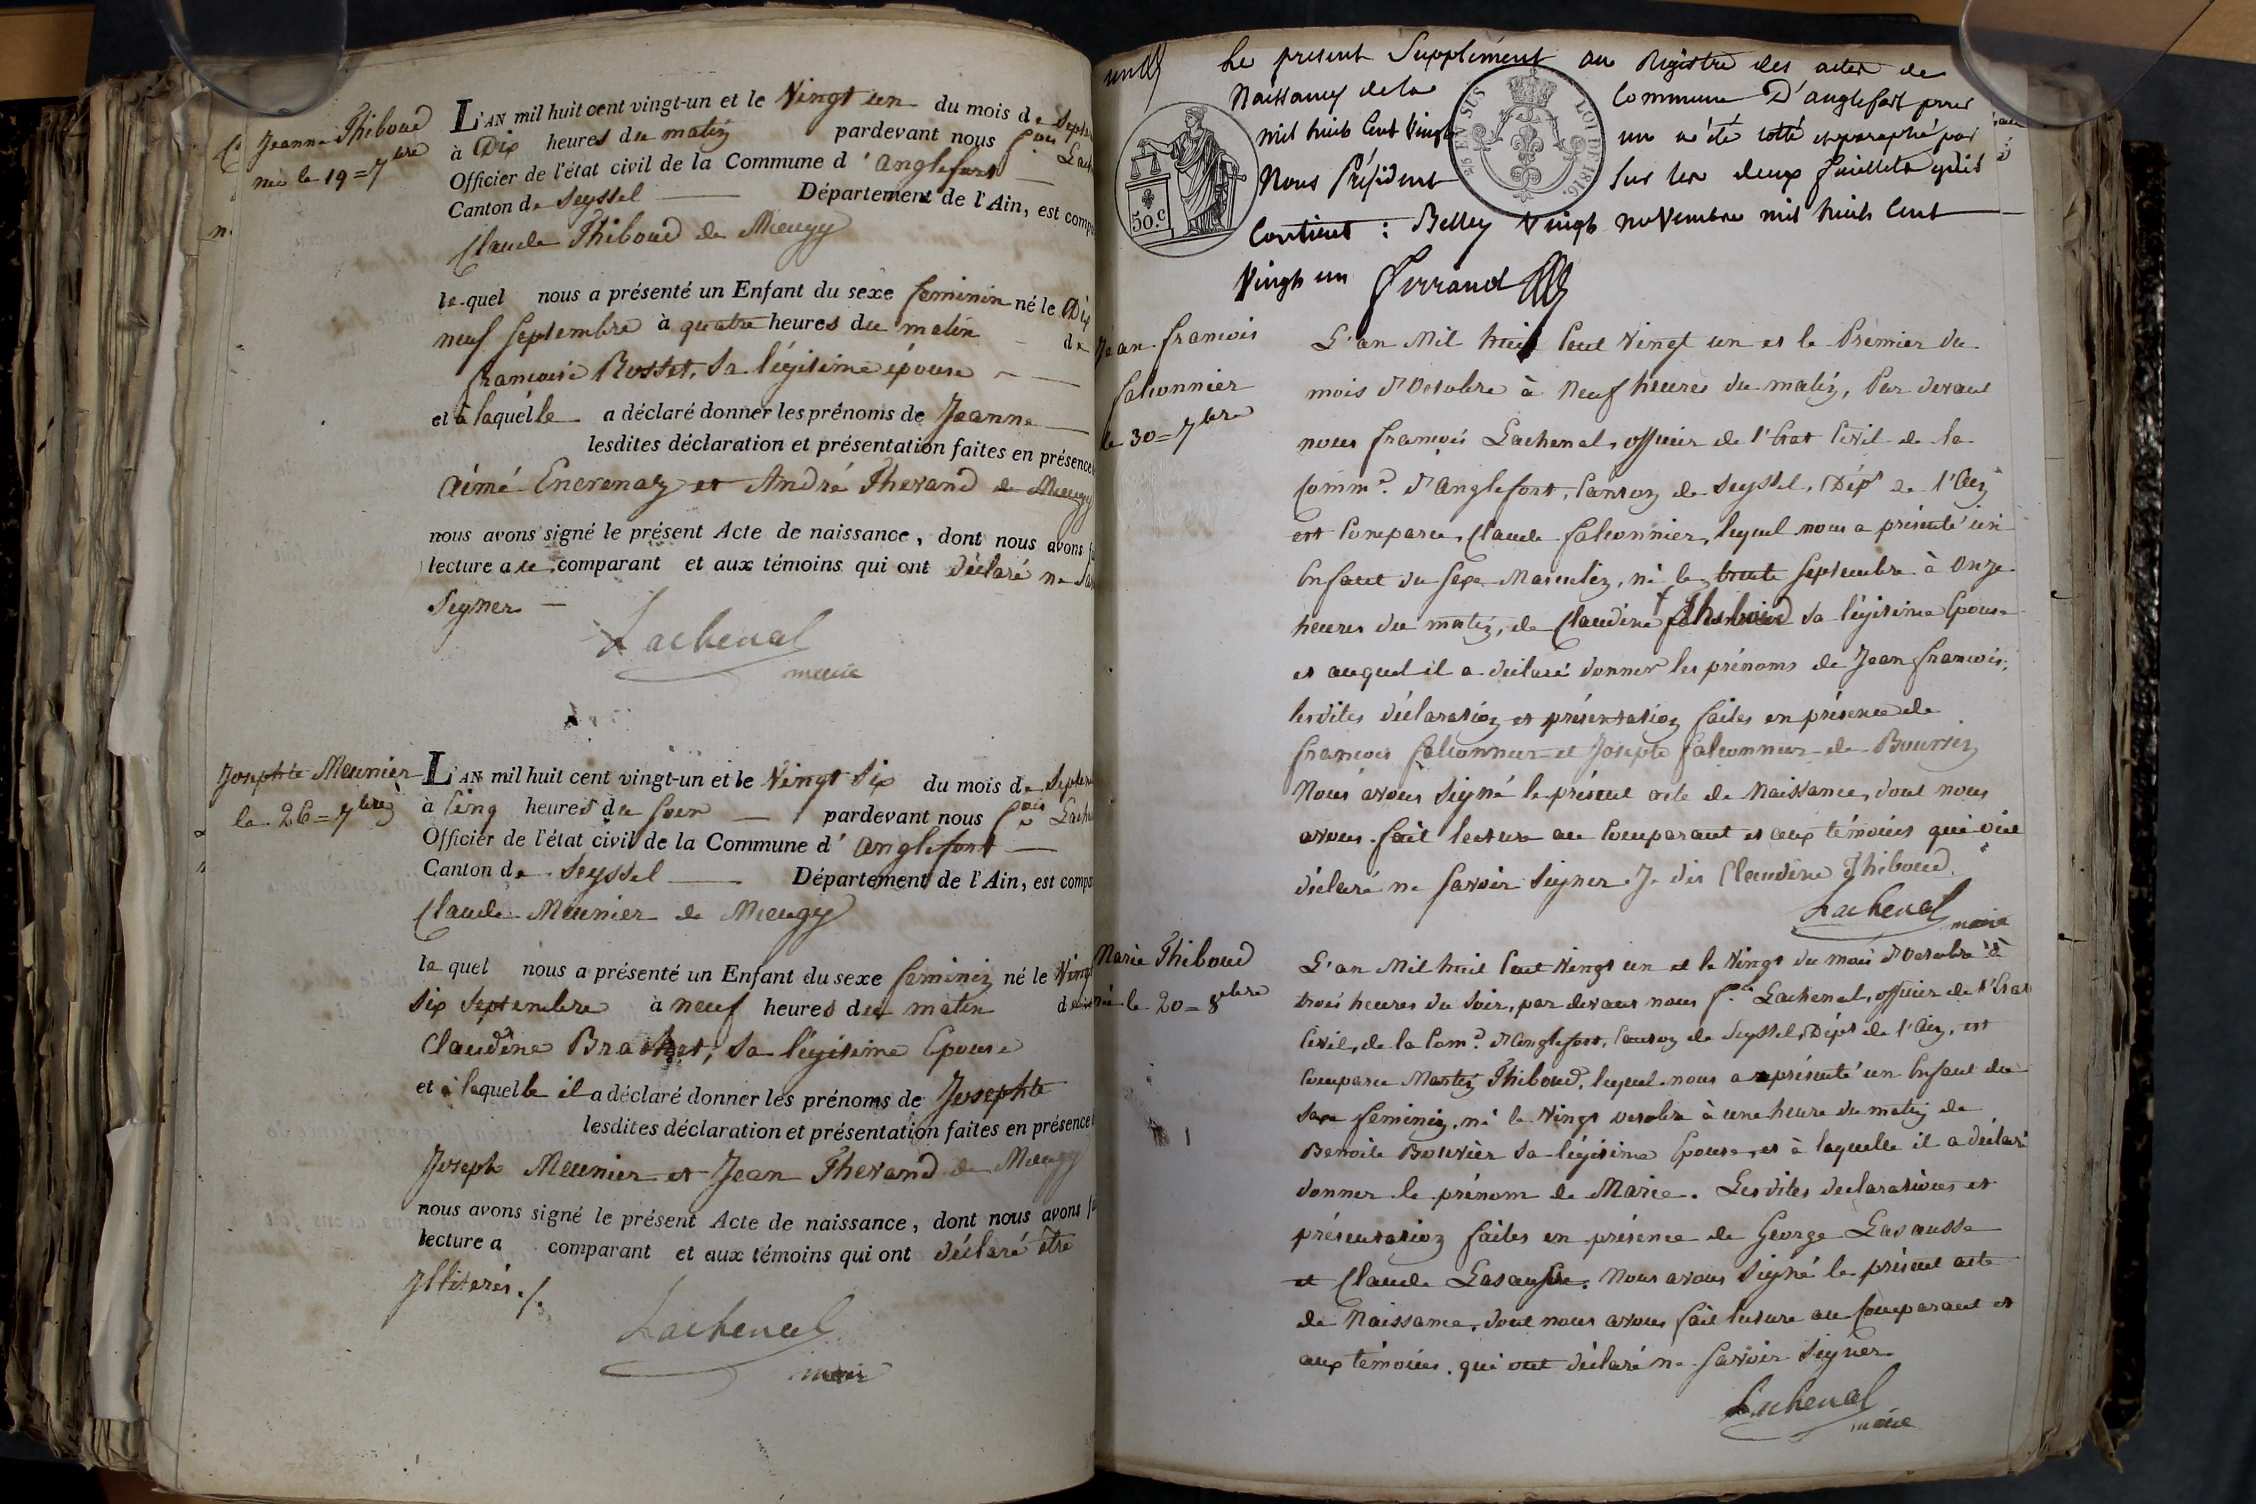 Jeanne Thiboud
née le 19 = 7bre
L'AN mil huit cent vingt-un et le Vingt un du mois de Septem
à Dix heures du matin pardevant nous fçois Lach
Officier de l'état civil de la Commune d'anglefort
Canton de Seyssel Département de l'Ain, est compa
Claude Thiboud de Mieugy
lequel nous a présenté un Enfant du sexe feminin né le Dix
neuf Septembre à quatre heures du matin de
francoise Rosset, Sa légitime épouse
et à laquélle a déclaré donner les prénoms de Jeanne
lesdites déclaration et présentation faites en présence
aimé Encrenaz et André Therand de Mieugy
nous avons signé le présent Acte de naissance, dont nous avons f
lecture au comparant et aux témoins qui ont déclaré ne Sav
Signer
Lachenal
maire
Josephte Meunier
le 26 = 7bre
L'AN mil huit cent vingt-un et le Vingt Six du mois de Septem
à Cinq heures du Soir pardevant nous fçois Lach
Officier de l'état civil de la Commune d'anglefort
Canton de Seyssel Département de l'Ain, est compa
Claude Meunier de Mieugy
lequel nous a présenté un Enfant du sexe feminin né le Vingt
Six Septembre à neuf heures du matin de
Claudine Brachet, Sa légitime Epouse
et à laquelle il a déclaré donner les prénoms de Josephte
lesdites déclaration et présentation faites en présence
Joseph Meunier et Jean Therand de Mieugy
nous avons signé le présent Acte de naissance, dont nous avons f
lecture a comparant et aux témoins qui ont déclaré être
Jlliterés ./.
Lachenal
maire
Le present Supplément au Registre des actes de
Naissances de la Commune D'anglefort pour
mil huit Cent Vingt un a été cotté et paraphé par
Nous Président sur les deux feuillets qu'il
Contient : Belley Vingt novembre mil huit Cent
Vingt un Ferrand
50.c
LOI DE 1816.
Jean francois
falconnier
le 30 = 7bre
L'an Mil huit Cent Vingt un et le Premier du
mois d'Octobre à Neuf heures du matin, Par devant
nous francois Lachenal, officier de l'Etat Civil de la
Comme. d'Anglefort, Canton de Seyssel, Dépt de l'Ain
est Comparu, Claude falconnier, lequel nous a présenté un
Enfant du Sexe Masculin, né le trente Septembre à Onze
heures du matin, de Claudine Thiboud sa légitime Epouse
et auquel il a déclaré donner les prénoms de Jean francois,
lesdites déclaration et présentation faites en présence de
francois falconnier et Joseph falconnier de Boursin
Nous avons Signé le présent acte de Naissance, dont nous
avons fait lecture au Comparant et aux témoins qui ont
déclaré ne Savoir Signer. Je dis Claudine Thiboud.
Lachenal
maire
Marie Thiboud
née le 20 = 8bre
L'an Mil huit Cent Vingt un et le Vingt du mois d'Octobre à
trois heures du Soir, par devant nous f.ois Lachenal, officier de l'Etat
Civil, de la Come. d'Anglefort, Canton de Seyssel, Dépt de l'Ain, est
Comparu Martin Thiboud, lequel nous a présenté un Enfant du
Sexe feminin, né le Vingt octobre à une heure du matin de
Benoite Bouvier Sa légitime Epouse, et à laquelle il a déclaré
donner le prénom de Marie. Lesdites declarations et
présentation faites en présence de George Lasausse
et Claude Lasausse. Nous avons Signé le présent acte
de Naissance, dont nous avons fait lecture au Comparant et
aux témoins, qui ont déclaré ne Savoir Signer
Lachenal
maire